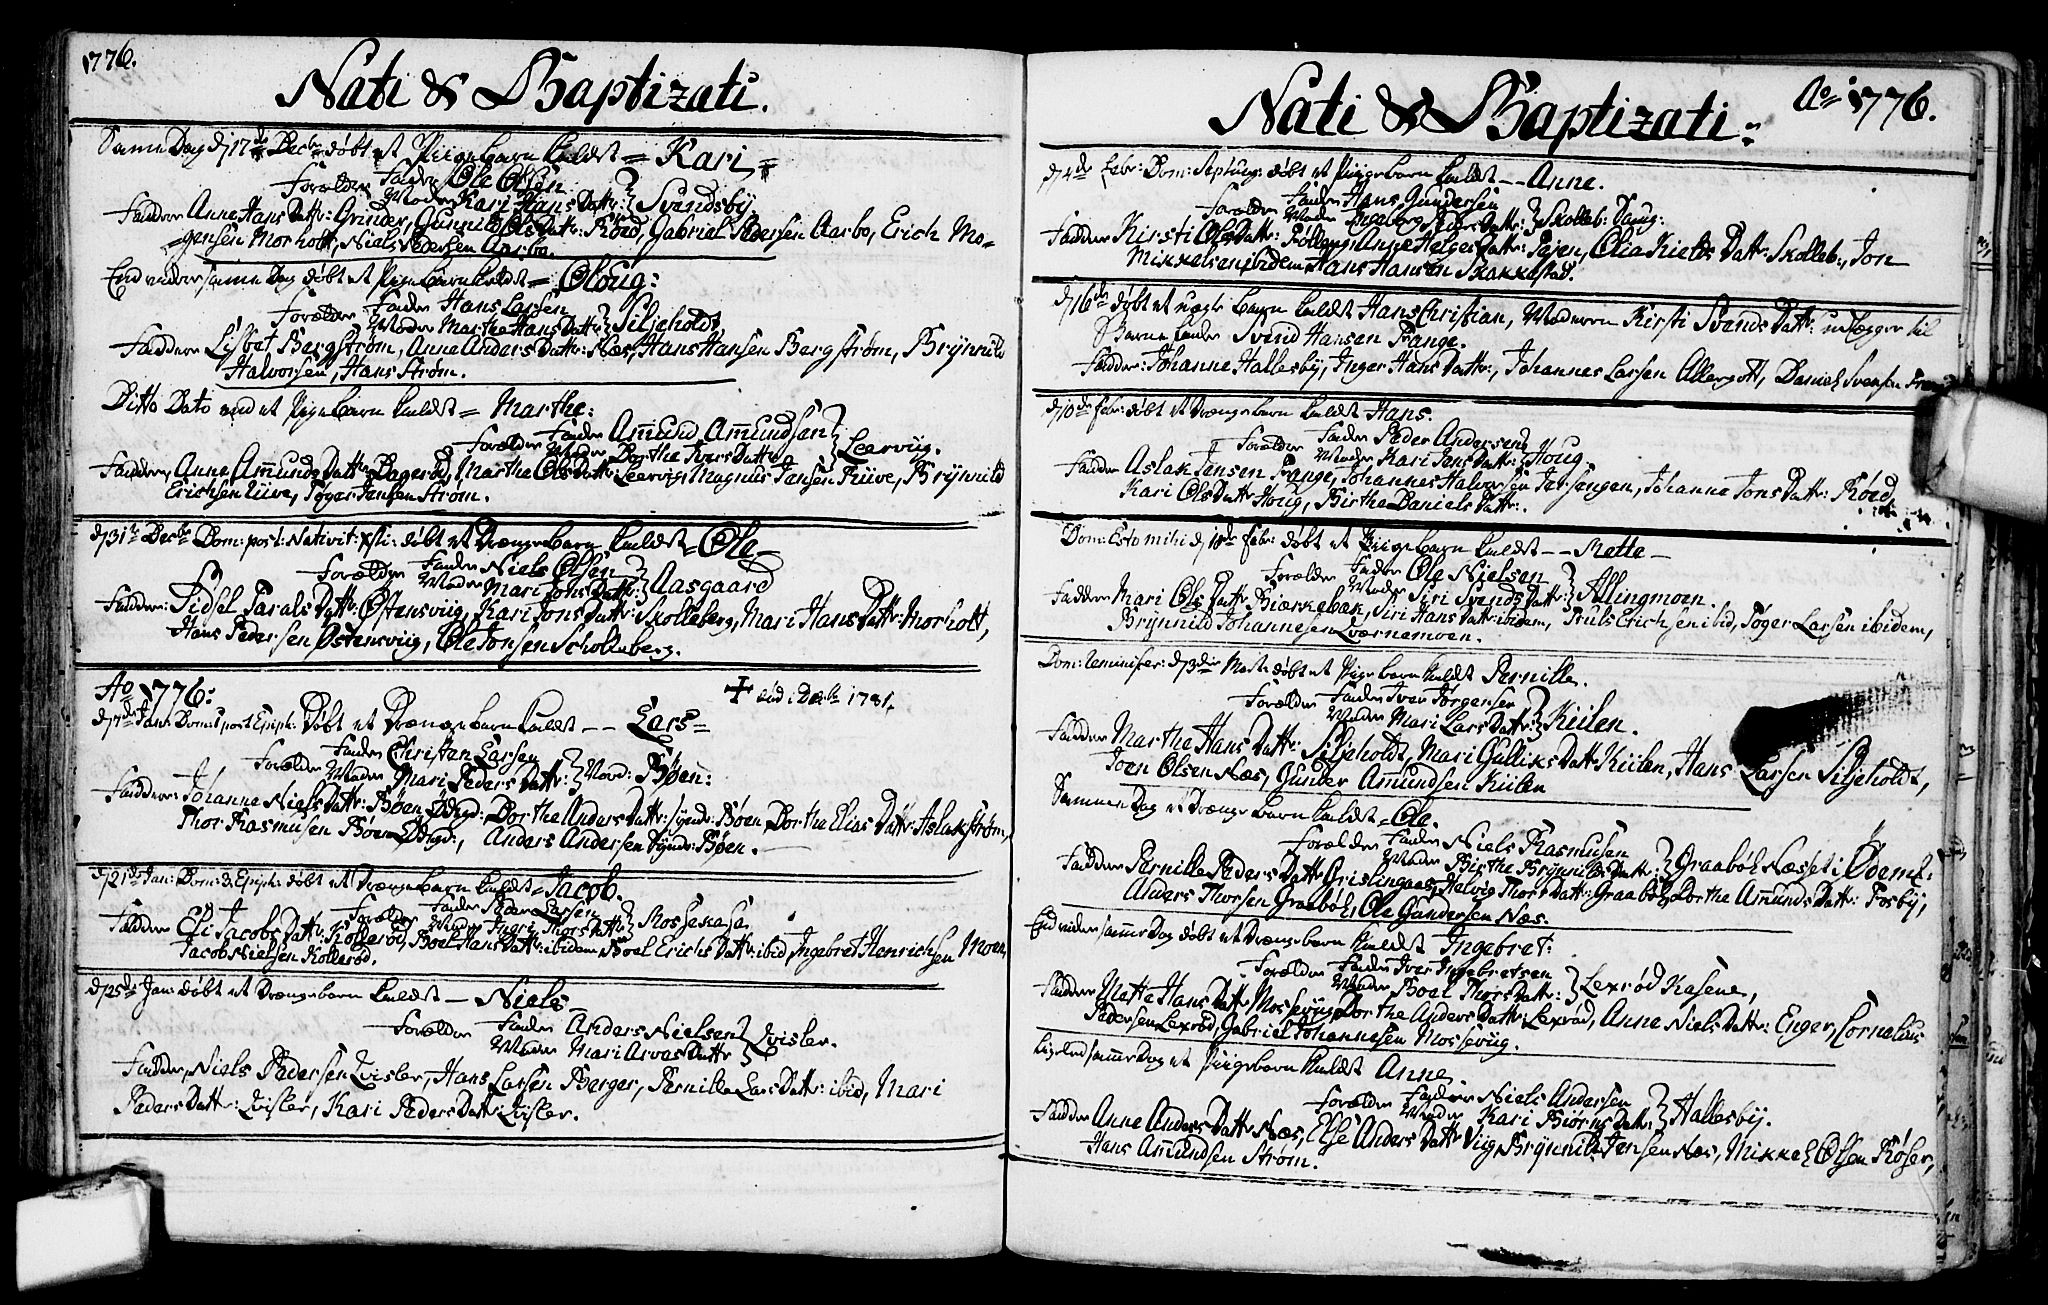 1776.
Nati & Baptizati.
Same Dag d. 17de Decbr døbt et Piigebarn kaldet = Kari =
Forælder Fader Ole Olsen
Moder Kari Hans Datt: } Svendsby
Faddere Anne Hans Datt: Grinder, Gunnild Ols Datt: Røed, Gabriel Pedersen Aarbo, Erich Mo-
gensen Morholt, Niels Pedersen Aarbo.
End videre same Dag døbt et Pigebarn kaldet = Oloug:
Forælder Fader Hans Larsen
Moder Marthe Hans Datt: } Siljeholdt,
Faddere Lisbet Bergstrøm, Anne Anders Datt: Næs, Hans Hansen Bergstrøm, Brynnild
Halvorsen, Hans Strøm.
Ditto Dato end et Pigebarn kaldet = Marthe:
Forælder Fader Amund Amundsen
Moder Dorthe Ivers Datt: } Leerviig.
Faddere, Anne Amunds Datt: Dagerød, Marthe Ols Datt: Leervig, Magnus Jensen Riive, Brynnild
Erichsen Riive, Tøger Jensen Strøm.
d. 31te Decbr Dom: post: Nativit: Xsti: døbt et Drængebarn kaldet = Ole
Forælder Fader Niels Olsen
Moder Mari Jons Datt: } Aasgaard
Faddere: Sidsel Tarals Datt: Østensviig, Kari Jons Datt: Skolleberg, Mari Hans Datt: Morholt,
Hans Pedersen Østensviig, Ole Jonsen Scholleberg.
Ao 1776:
✝ død i Decbr 1781,
d. 7de Jan: Dom: 1 post Epiph: Døbt et Drængebarn kaldet -- Lars =
Forælder Fader Christen Larsen
Moder Mari Peders Datt: } Nord: Bøen:
Faddere: Johanne Niels Datt: Bøen Ødegd:, Dorthe Anders Datt: Syndr: Bøen, Dorthe Elias Datt: Aslakstrøm,
Thor Rasmusen Bøen Ødegd:, Anders Andersen Syndr: Bøen.
d. 21de Jan: Dom: 3. Epiph: døbt et Drængebarn kaldet = Jacob.
Forælder Fader Peder Larsen
Moder Ingri Thors Datt: } Mossekasa
Faddere Eli Jacobs Datt: Kollerød, Boel Hans Datt: ibidem, Boel Erichs Datt: ibid, Ingebret Henrichsen Moen,
Jacob Nielsen Kollerød.
d. 25de Jan: døbt et Drængebarn kaldet - Niels -
Forælder Fader Anders Nielsen
Moder Mari Arves Datt: } Qvisler.
Faddere, Niels Pedersen Qvisler, Hans Larsen Berger, Pernille Lars Datt: ibid, Mari
Peders Datt: Qvisler, Kari Peders Datt: Qvisler.
Nati & Baptizati:
Ao 1776.
d. 4de Febr: Dom: Septuag: døbt et Piigebarn kaldet -- Anne.
Forælder Fader Hans Gundersen
Moder Ingeborg Datt: } Skolleb: Saug:
Faddere Kirsti Ols Datt: Anne Helges Datt: Olia Kields Datt: Skolleb:, Jon
Mikkelsen ibidem, Hans Hansen Skakkestad.
d. 6te døbt et uægte barn kaldet Hans Christian, Moderen Kirsti Svends Datt: udlægger til
Barnefader Svend Hansen Range.
Faddere: Johanne Hallesby, Inger Hans Datt:, Johannes Larsen Allergott, Daniel Svensen
d. 10de Febr: døbt et Drængebarn kaldet Hans.
Forælder Fader Peder Andersen
Moder Kari Jens Datt: } Houg
Faddere Aslak Jensen Range, Johannes Halvorsen Jersengen, Johanne Jons Datt: Røed,
Kari Ols Datt: Houg, Birthe Daniels Datt:.
Dom: Esto mihi d. 18de Febr: døbt et Piigebarn kaldet -- Mette -
Forælder Fader Ole Nielsen
Moder Siri Svends Datt: } Allingmoen.
Faddere Mari Ols Datt: Biærkebæk, Siri Hans Datt: ibidem, Truls Erichsen ibid, Tøger Larsen ibidem,
Brynnild Johannesen Qvernemoen.
Dom: Reminiscer: d. 3die Marti døbt et Pigebarn kaldet Pernille.
Forælder Fader Iver Jørgensen
Moder Mari Lars Datt: } Kiilen.
Faddere Marthe Hans Datt: Siljeholdt, Mari Gulliks Datt: Kiilen, Hans Larsen Siljeholdt,
Joen Olsen Næs, Gunder Amundsen Kiilen
Samme Dag et Drængebarn kaldet = Ole.
Forælder Fader Niels Rasmusen
Moder Birthe Brynnilds Datt: } Graabøl Næsset i Ødemk:
Faddere Pernille Peders Datt: Grislingaas, Helvig Thors Datt: Graabøl, Dorthe Amunds Datt: Fosby,
Anders Thorsen Graabøl, Ole Gundersen Næs.
End videre samme Dag døbt et Drængebarn kaldet Ingebret:
Forælder Fader Iver Ingebretsen
Moder Boel Thors Datt: } Lexrød Kasene,
Faddere Mette Hans Datt: Mosseviig, Dorthe Anders Datt: Lexrød, Anne Niels Datt: Enger, Cornelius
Pedersen Lexrød, Gabriel Johannesen Mosseviig.
Ligeled samme Dag et Piigebarn kaldet Anne.
Forælder Fader Niels Andersen
Moder Kari Biørns Datt: } Hallesby.
Faddere Anne Anders Datt: Næs, Else Anders Datt: Viig, Brynnild Jensen Næs, Mikkel Olsen Røser,
Hans Amundsen Strøm.